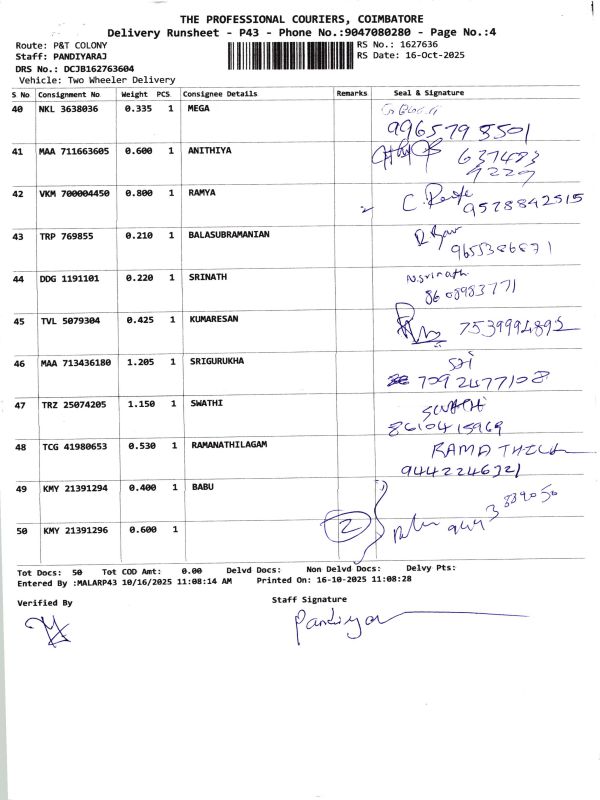 THE PROFESSIONAL COURIERS, COIMBATORE
Delivery Runsheet - P43 - Phone No.:9047080280 - Page No.:4
Route: P&T COLONY RS No.: 1627636
Staff: PANDIYARAJ RS Date: 16-Oct-2025
DRS No.: DCJB162763604
Vehicle: Two Wheeler Delivery
S No Consignment No Weight PCS Consignee Details Remarks Seal & Signature
40 NKL 3638036 0.335 1 MEGA
9965798501
41 MAA 711663605 0.600 1 ANITHIYA
637483
9229
42 VKM 700004450 0.800 1 RAMYA
9578842515
43 TRP 769855 0.210 1 BALASUBRAMANIAN
9655386871
44 DDG 1191101 0.220 1 SRINATH N.Srinath
8608983771
45 TVL 5079304 0.425 1 KUMARESAN
7539994892
46 MAA 713436180 1.205 1 SRIGURUKHA
7092477108
47 TRZ 25074205 1.150 1 SWATHI SWATHI
8610415969
48 TCG 41980653 0.530 1 RAMANATHILAGAM RAMA THILA
9442246321
49 KMY 21391294 0.400 1 BABU
2 Babu 9443839050
50 KMY 21391296 0.600 1
Tot Docs: 50 Tot COD Amt: 0.00 Delvd Docs: Non Delvd Docs: Delvy Pts:
Entered By :MALARP43 10/16/2025 11:08:14 AM Printed On: 16-10-2025 11:08:28
Verified By Staff Signature
Pandiyar